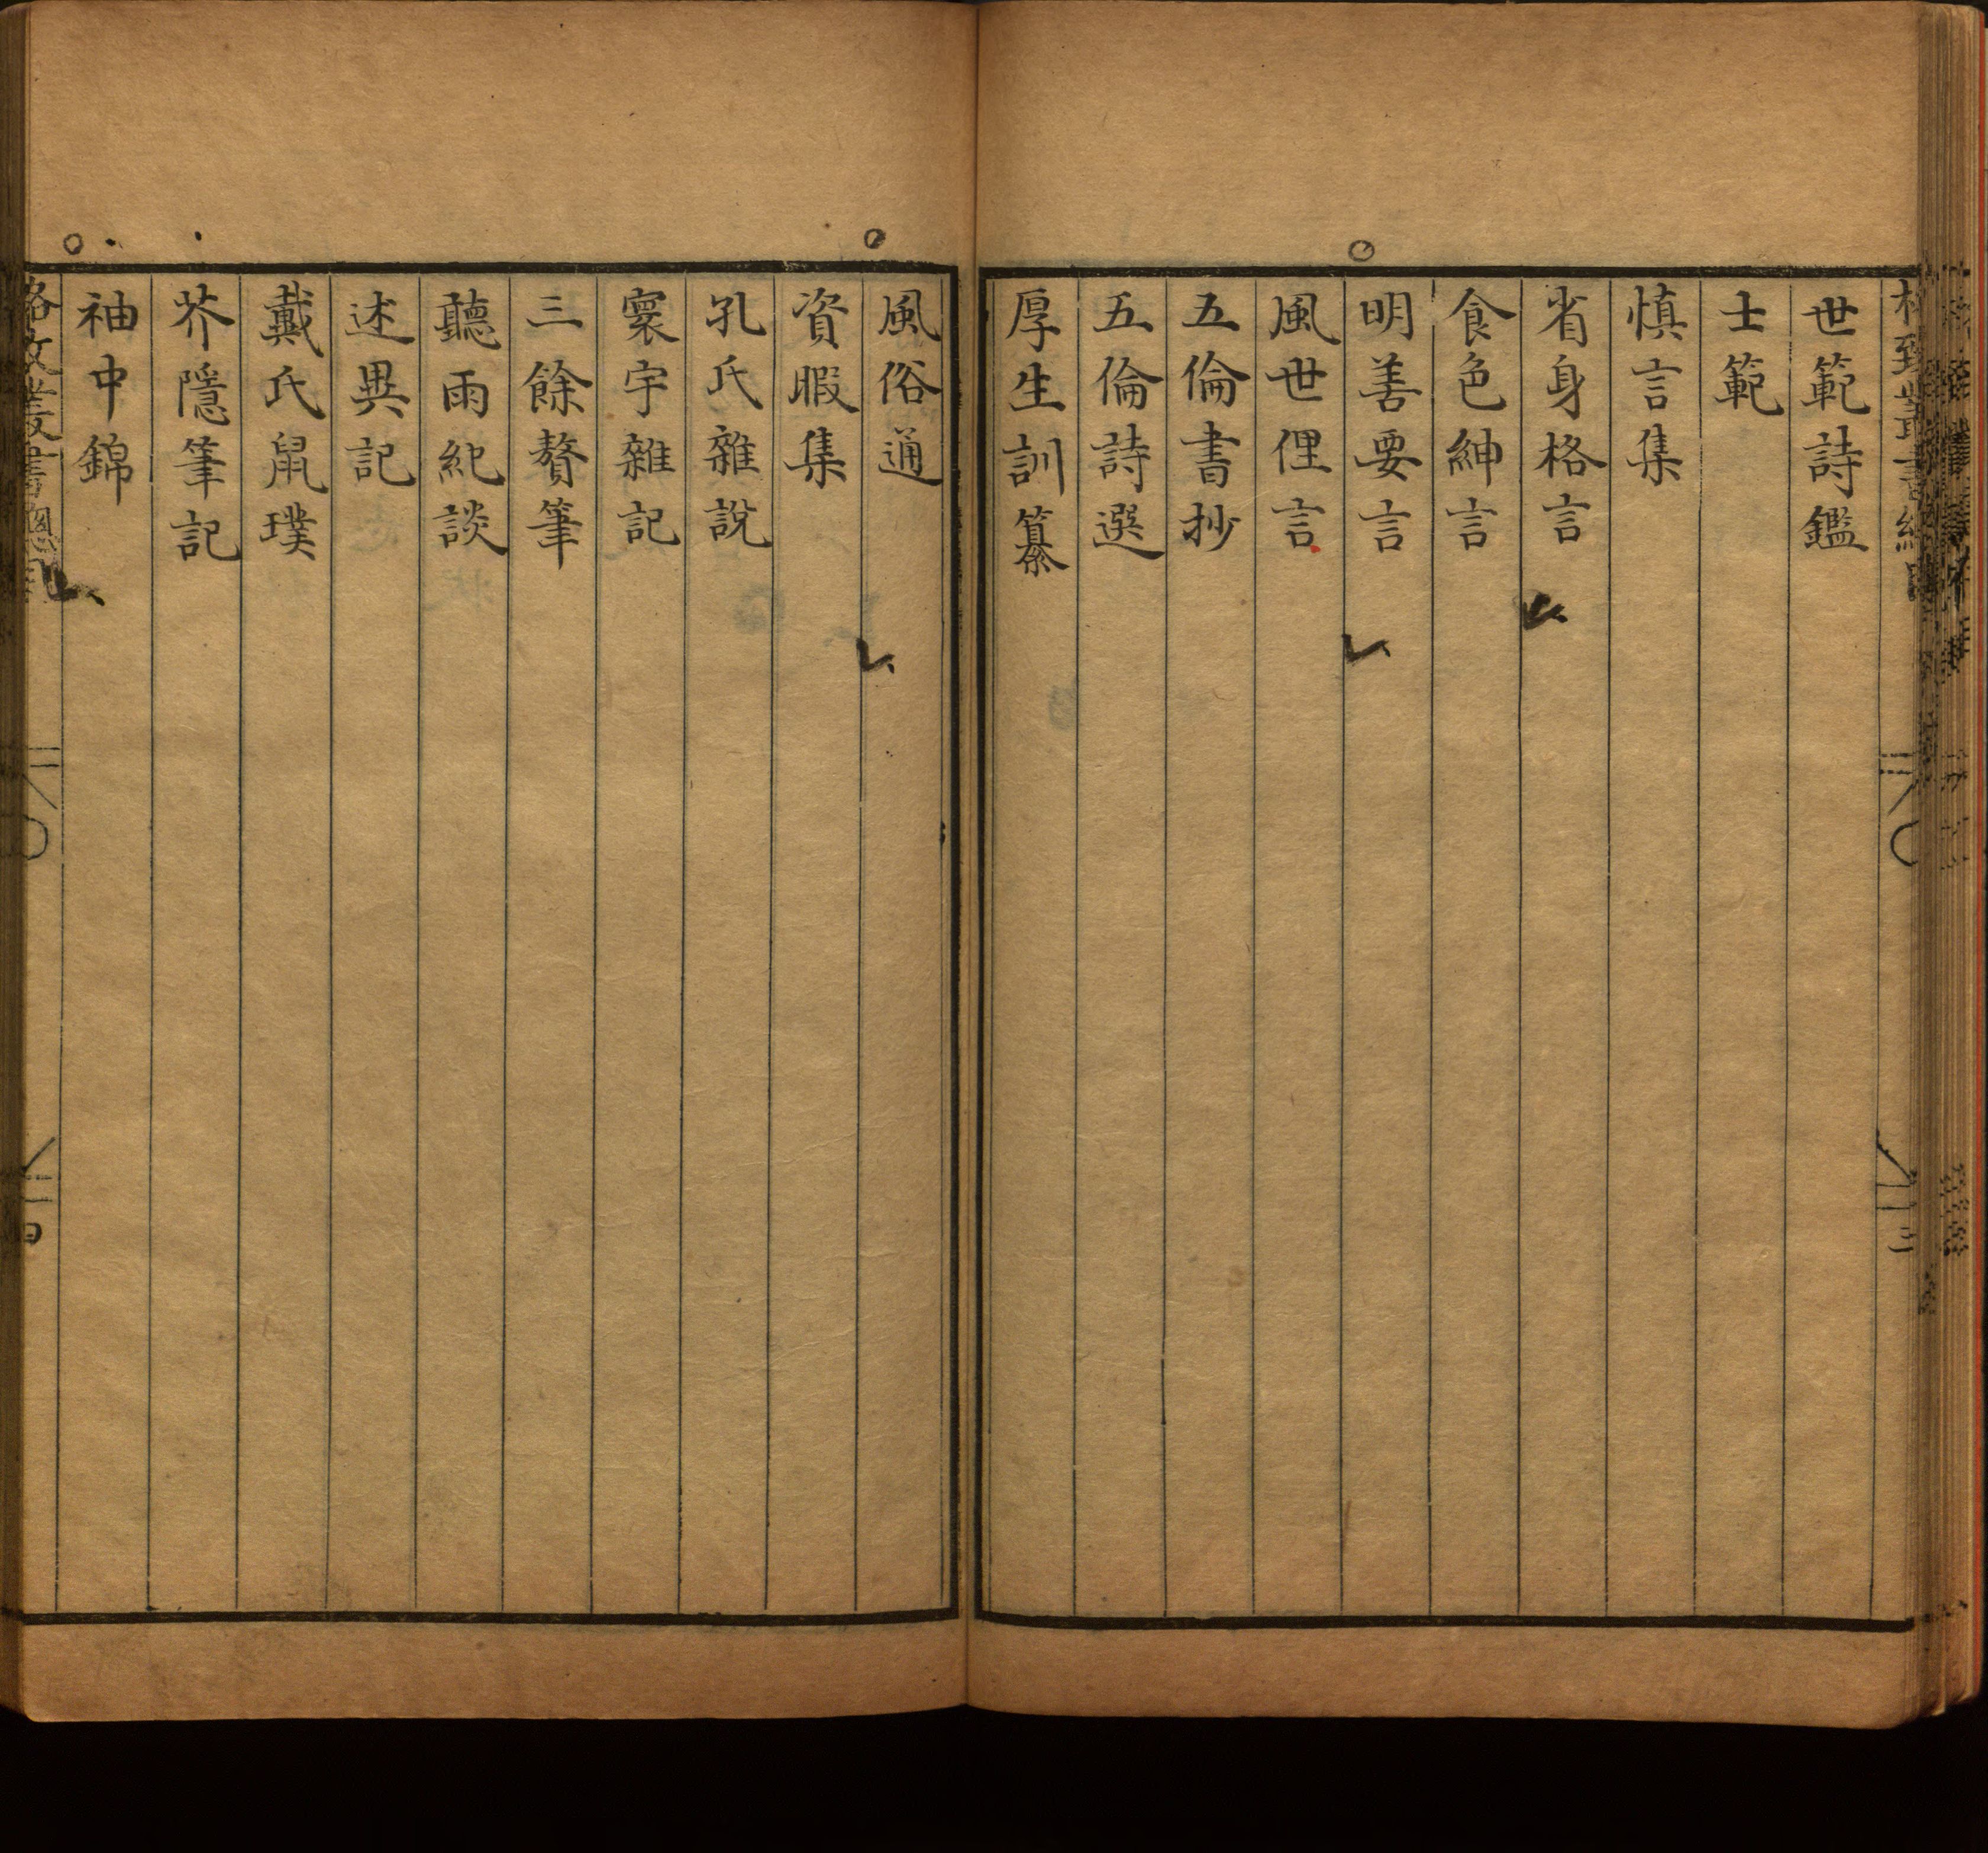 世範詩鑑
士範
慎言集
省身格言
食色紳言
明善要言
風世俚言
五倫書抄
五倫詩選
厚生訓纂
風俗通
資暇集
孔氏雜說
寰宇雜記
三餘贅筆
聽雨紀談
述異記
戴氏鼠璞
芥隱筆記
袖中錦
格致叢書總目